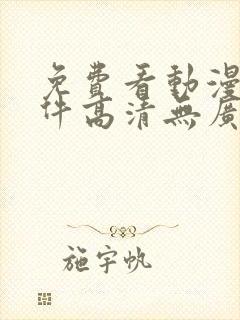 免費看動漫
件高清無廣
施宇帆